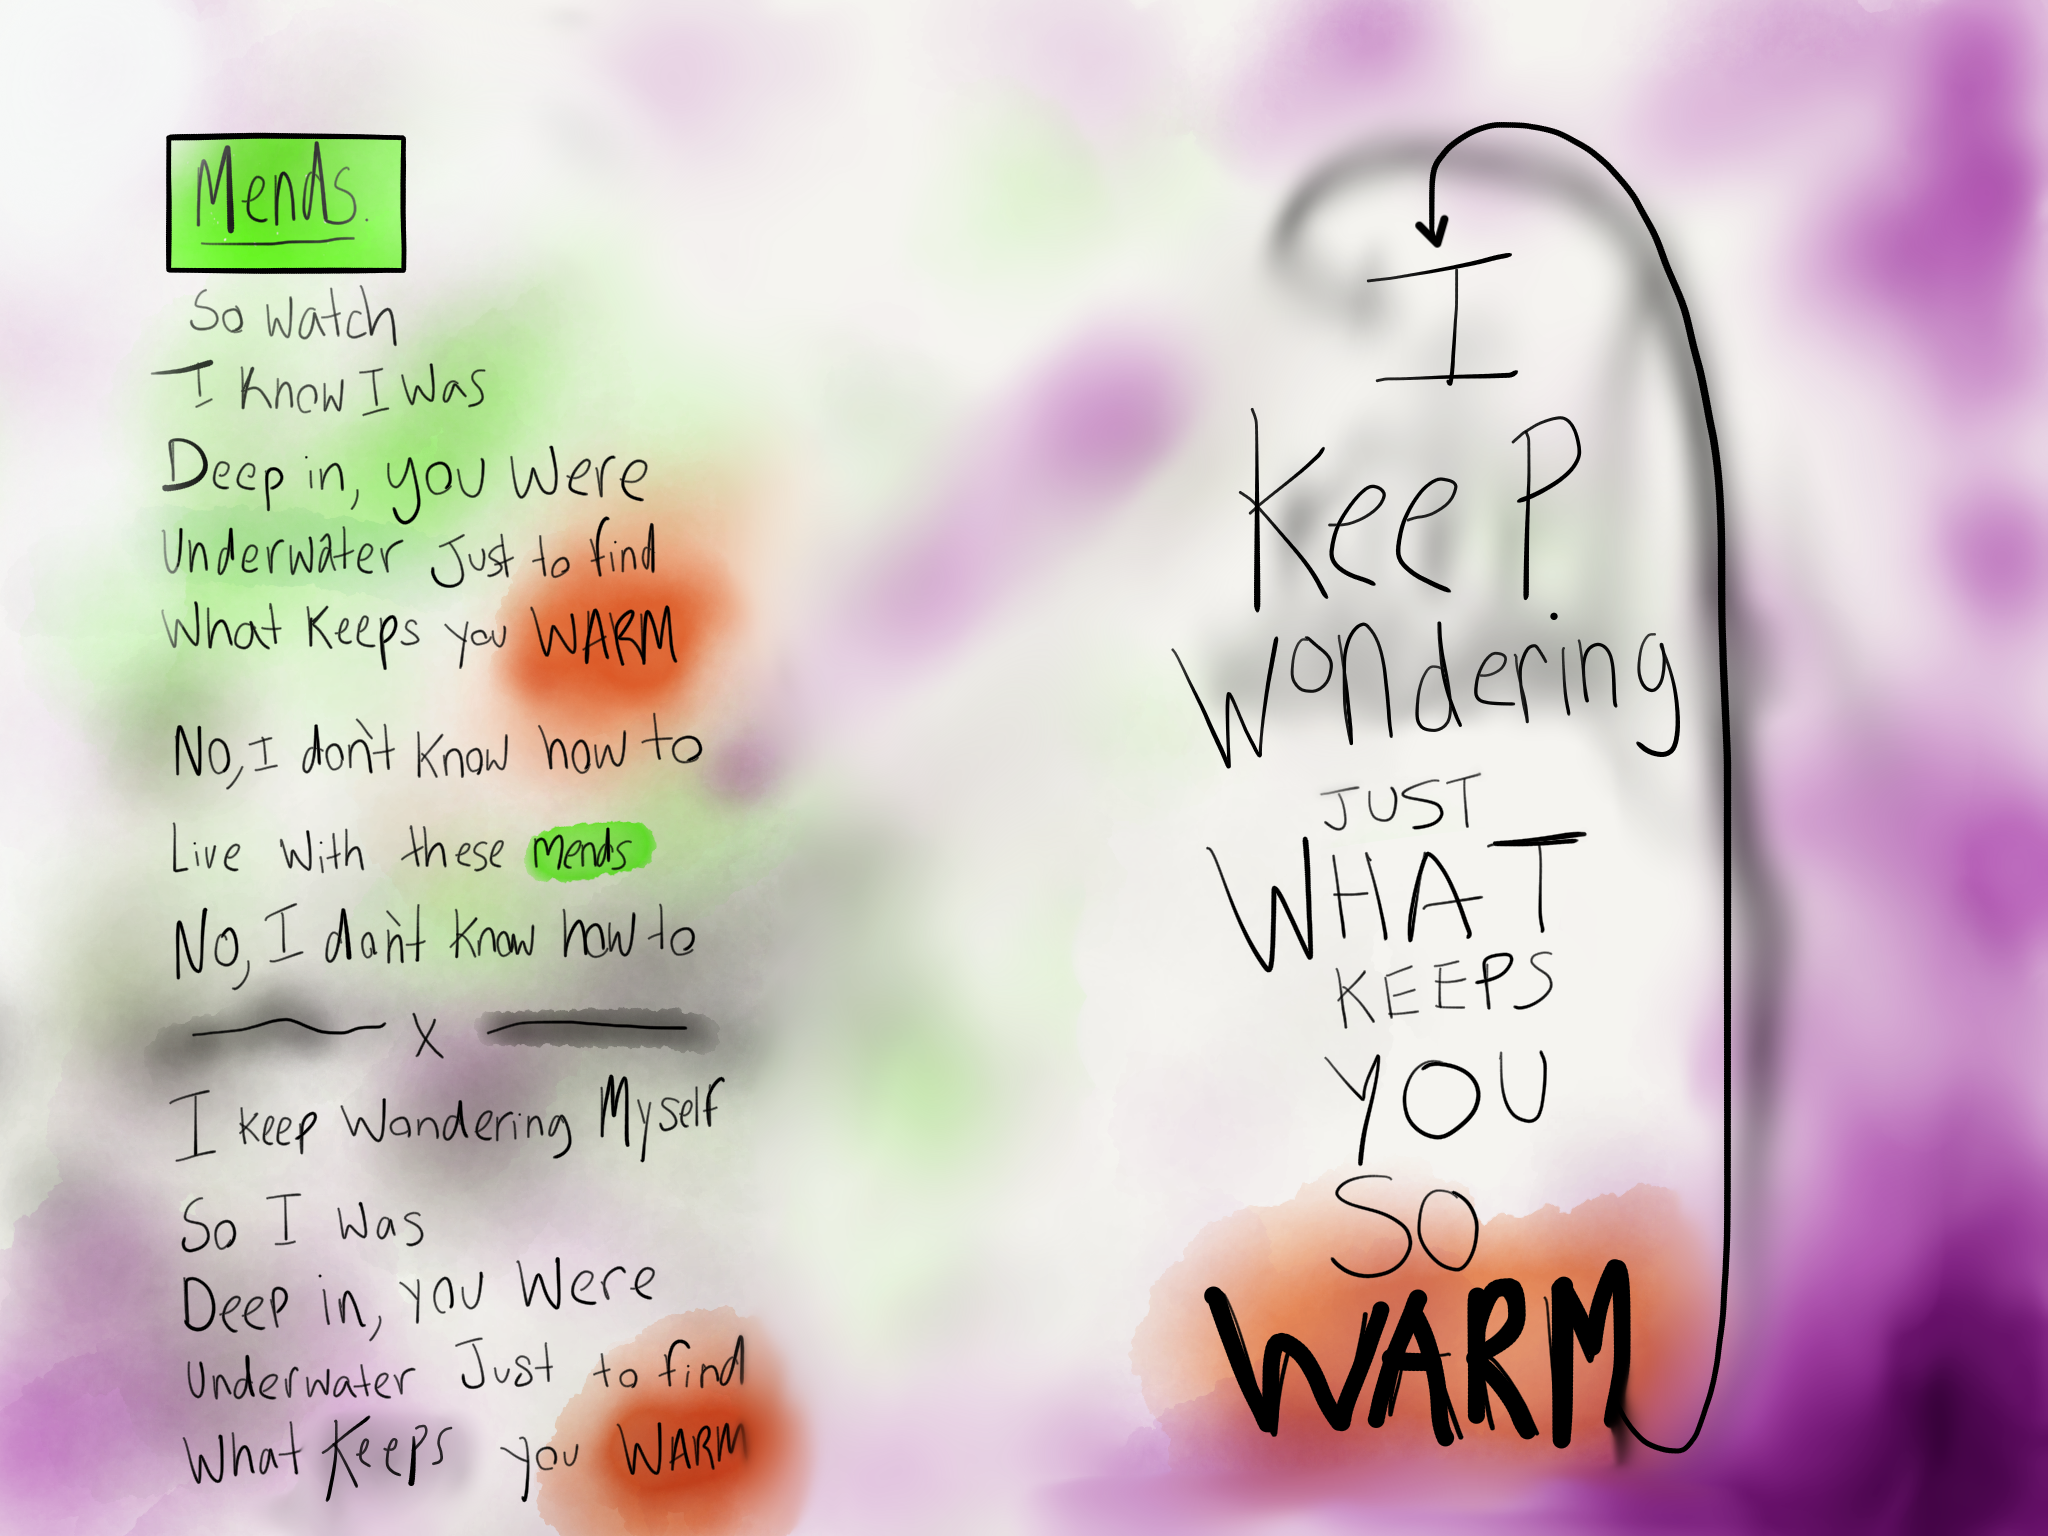 Mends.
So watch
I know I was
Deep in, you were
Underwater Just to find
What Keeps you WARM
No, I don't know how to
Live with these mends
No, I don't know how to
X
I keep wondering Myself
So I was
Deep in, you were
Underwater Just to find
What Keeps you WARM
I
Keep
wondering
JUST
WHAT
KEEPS
YOU
SO
WARM